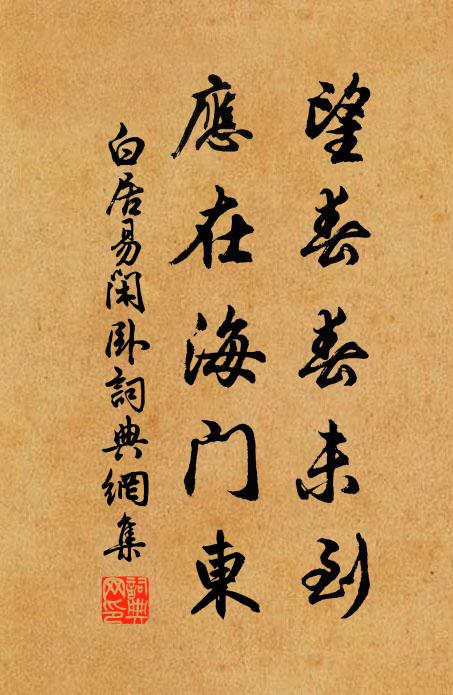 望春春未到
應在海門東
白居易閑臥詞典網集
詞典网印